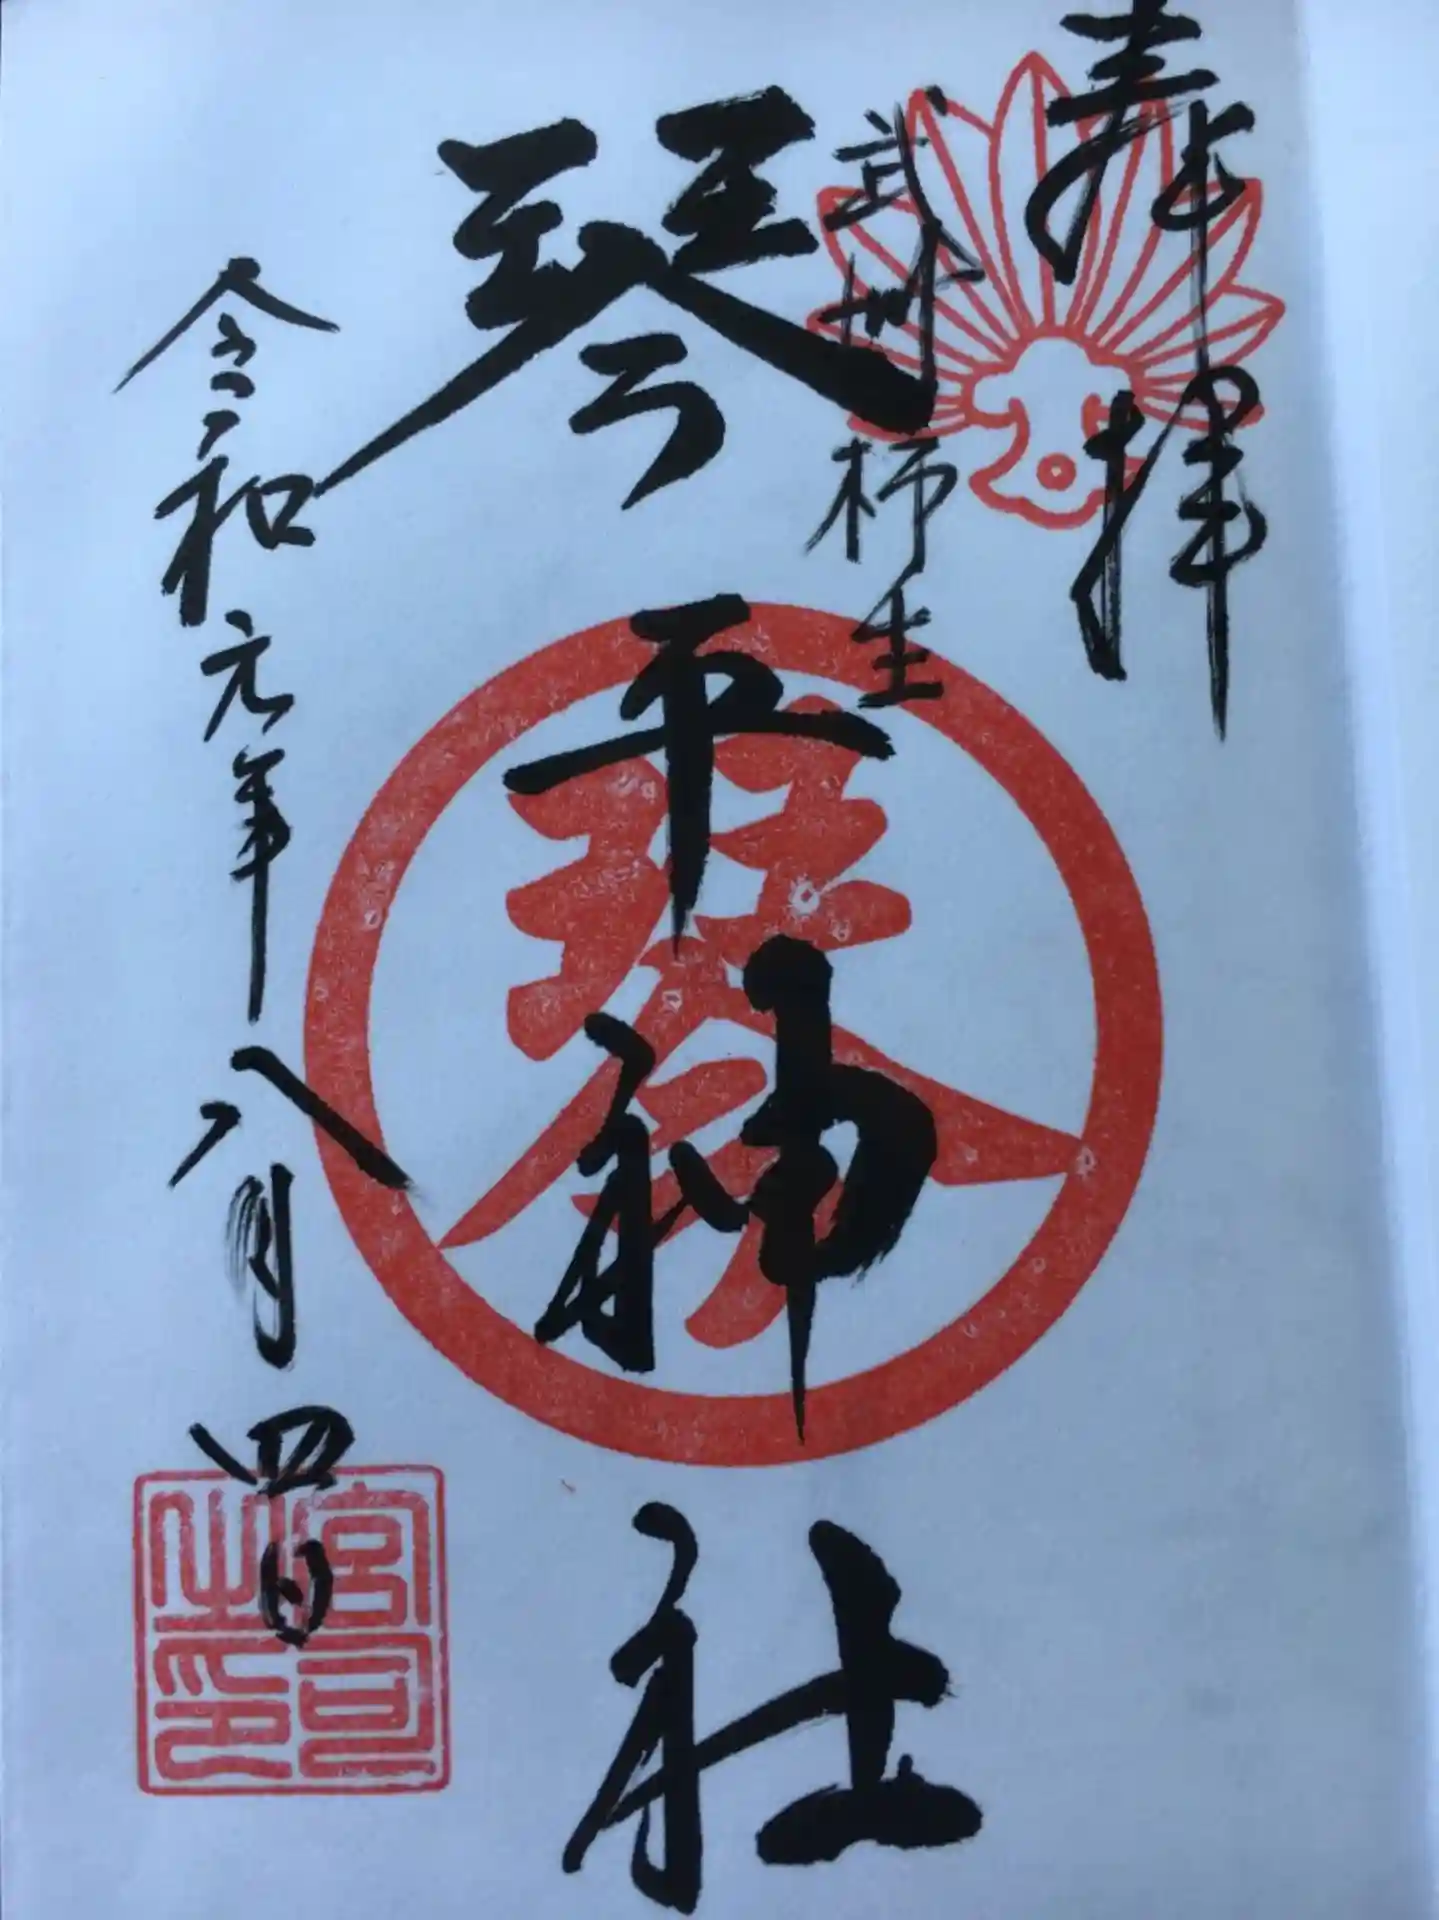 奉拝
武州柿生
琴平神社
令和元年八月四日
琴
宮司
之印